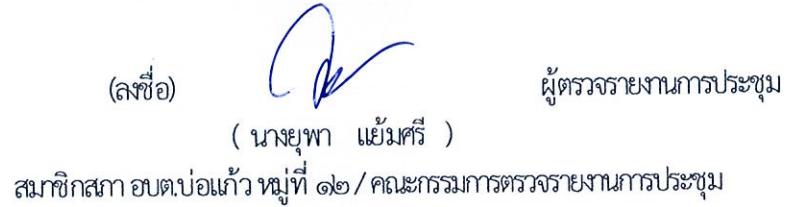 (ลงชื่อ) ผู้ตรวจรายงานการประชุม
( นางยุพา แย้มศรี )
สมาชิกสภา อบต.บ่อแก้ว หมู่ที่ ๑๒ / คณะกรรมการตรวจรายงานการประชุม